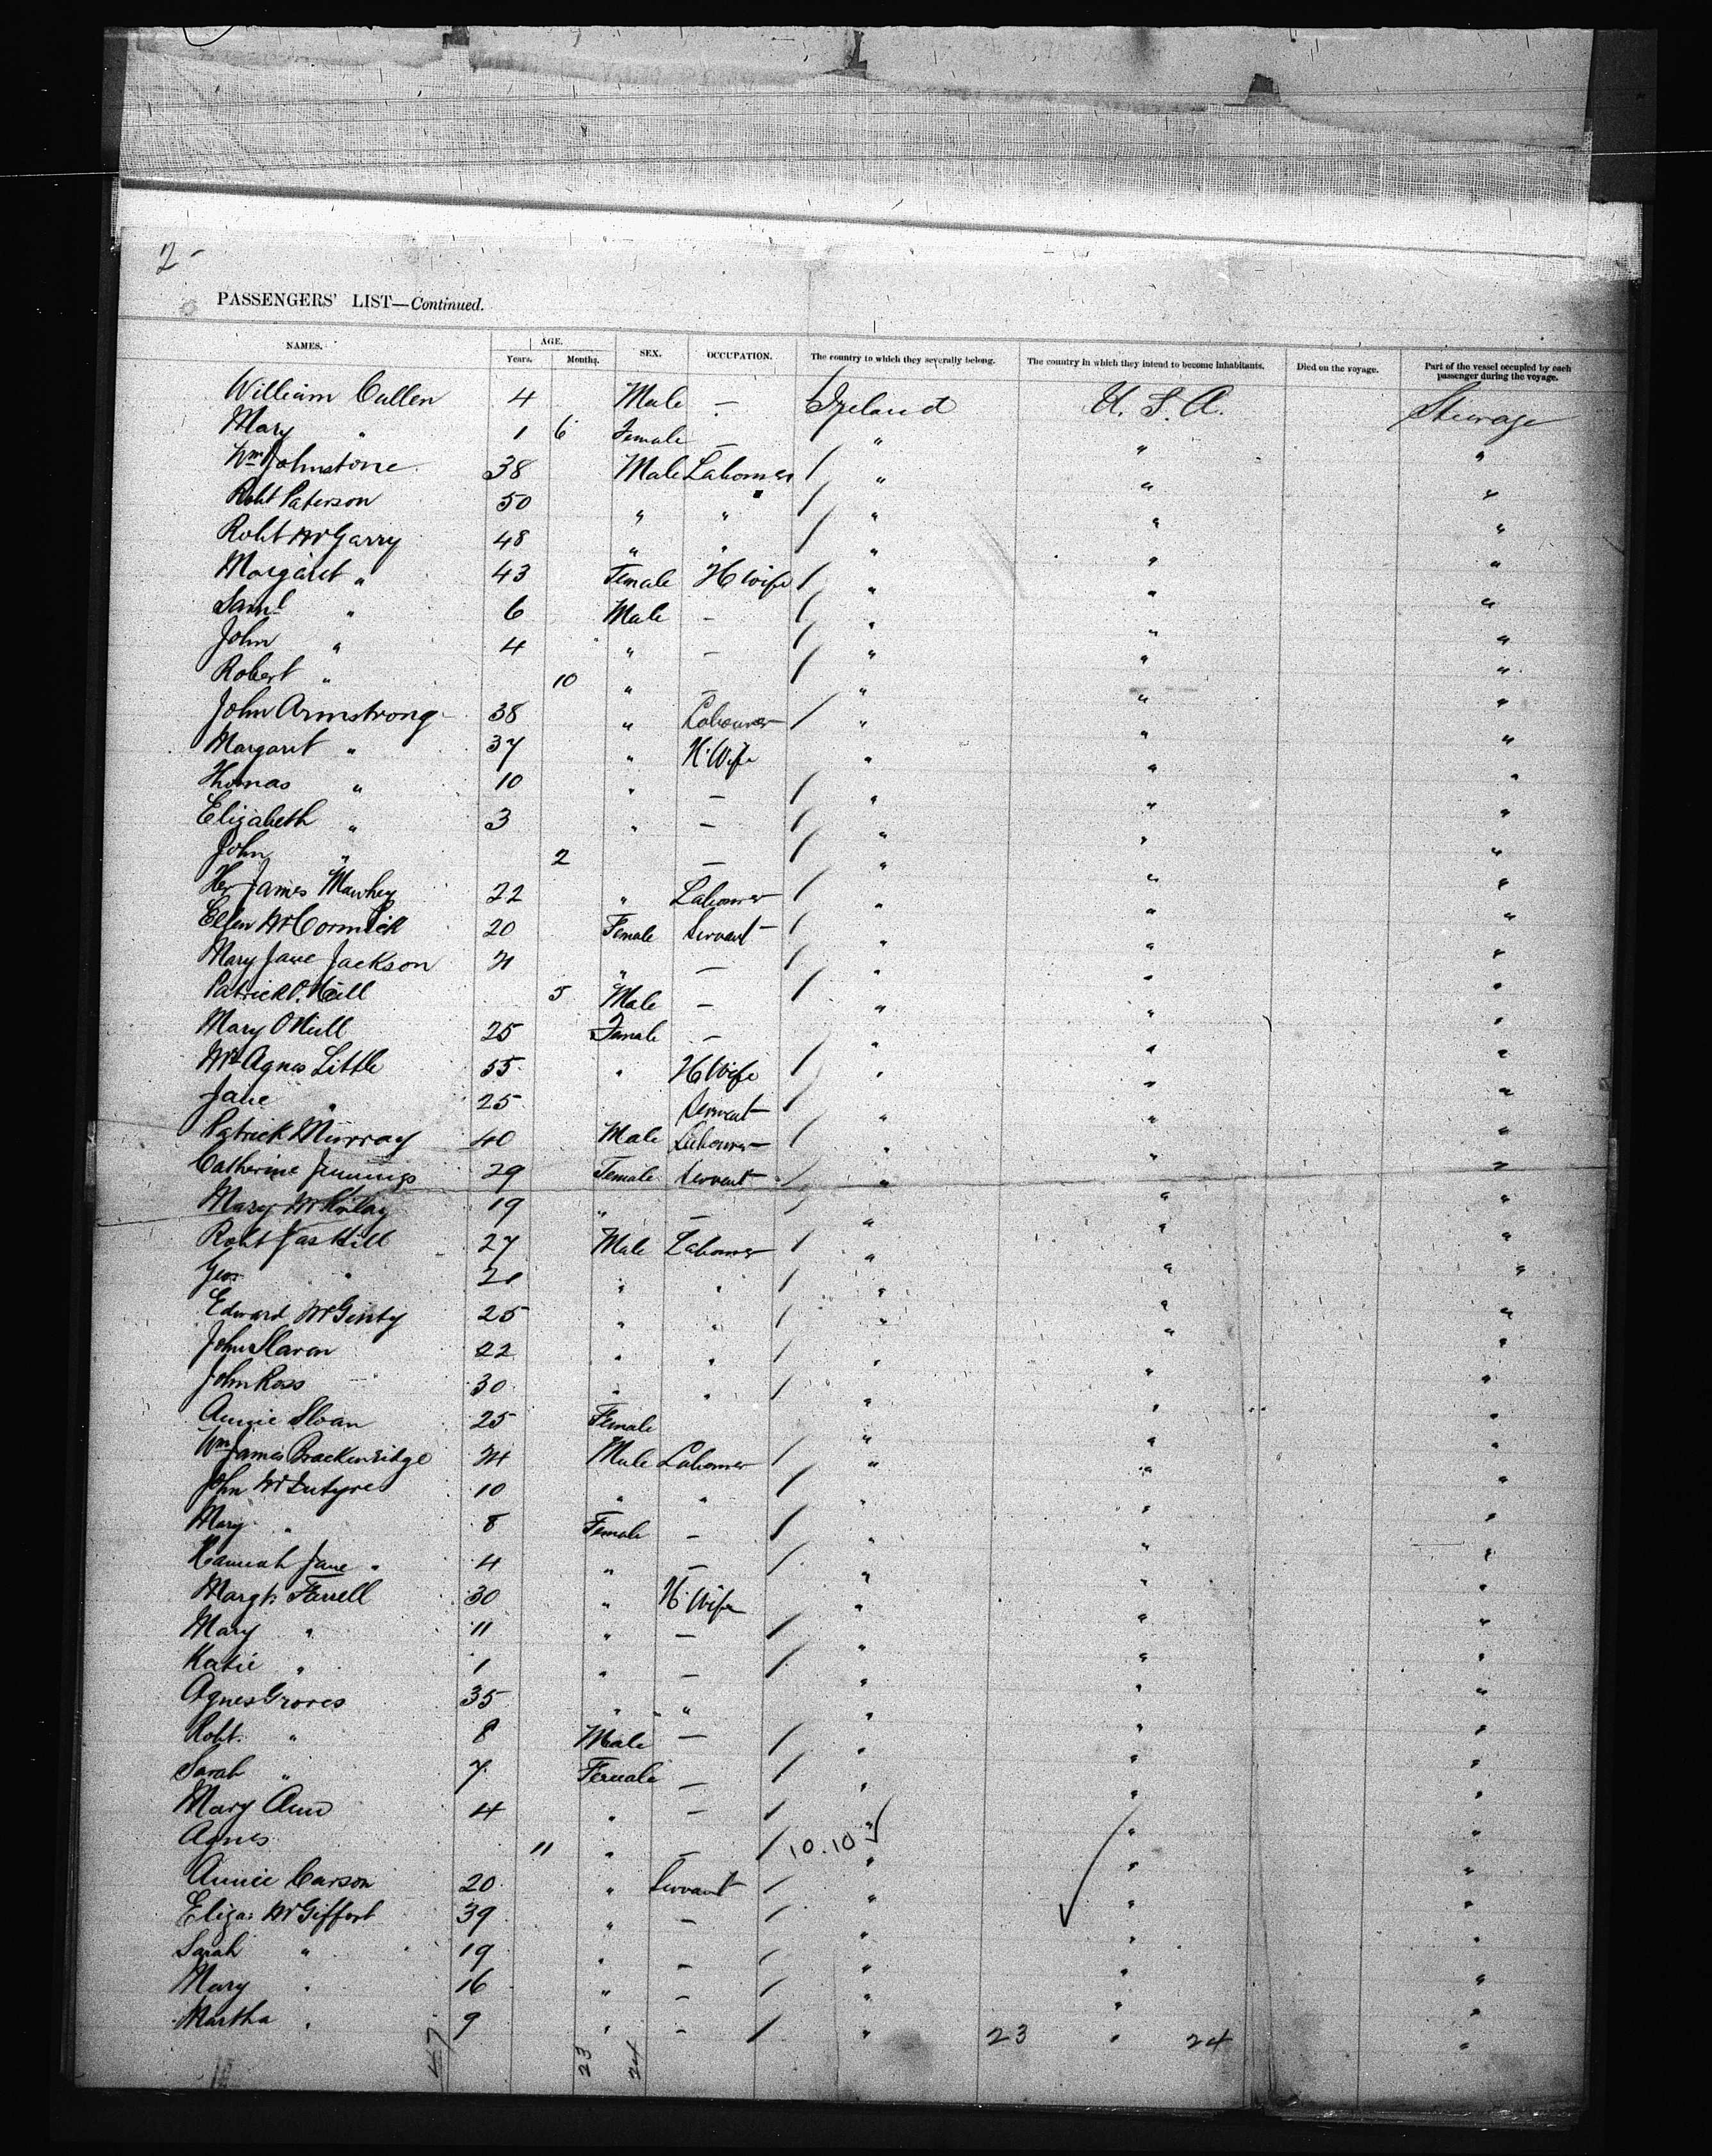 2-
PASSENGERS' LIST—Continued.
NAMES. AGE. Years. Months. SEX. OCCUPATION. The country to which they severally belong. The country in which they intend to become inhabitants. Died on the voyage. Part of the vessel occupied by each passenger during the voyage.
William Cullen 4 Male — / Ireland U. S. A. Steerage
Mary " 1 6 Female — / " " "
Wm Johnstone 38 Male Labourer / " " "
Robt Paterson 50 " " / " " "
Robt McGarry 48 " " / " " "
Margaret " 43 Female H Wife / " " "
Saml " 6 Male — / " " "
John " 4 " — / " " "
Robert " 10 " — / " " "
John Armstrong 38 " Labourer / " " "
Margaret " 37 " H. Wife " " "
Thomas " 10 " — / " " "
Elizabeth " 3 " — / " " "
John " 2 — / " " "
James 22 " Labourer / " " "
Ellen McCormick 20 Female Servant / " " "
Mary Jane Jackson " — / " " "
Patrick O'Neill 5 Male — / " " "
Mary O'Neill 25 Female — " " "
Mrs Agnes Little 55 " H Wife / " " "
Jane " 25 Servant / " " "
Patrick Murray 40 Male Labourer / " " "
Catherine Jennings 29 Female Servant / " " "
Mary McKinlay 19 " — / " " "
Robt Jas Hill 27 Male Labourer / " " "
Geo " " " / " " "
Edward McGinty 25 " " / " " "
John Slaven 22 " " / " " "
John Ross 30 " " / " " "
Annie Sloan 25 Female " " "
Wm James Brackenridge Male Labourer / " " "
John McIntyre 10 " " / " " "
Mary " 8 Female — / " " "
Hannah Jane " 4 " — / " " "
Margt. Farrell 30 " H. Wife " " "
Mary " 11 " — / " " "
Katie " 1 " — / " " "
Agnes Groves 35 " " " " "
Robt. " 8 Male — / " " "
Sarah " 7 Female — / " " "
Mary Ann 4 " — / " " "
Agnes 11 " — / 10.10 " " "
Annie Carson 20 " Servant / " " "
Eliza: McGiffort 39 " — / " " "
Sarah " 19 " — / " " "
Mary " 16 " — / " " "
Martha " 9 " — / " " "
47 23 24 23 24